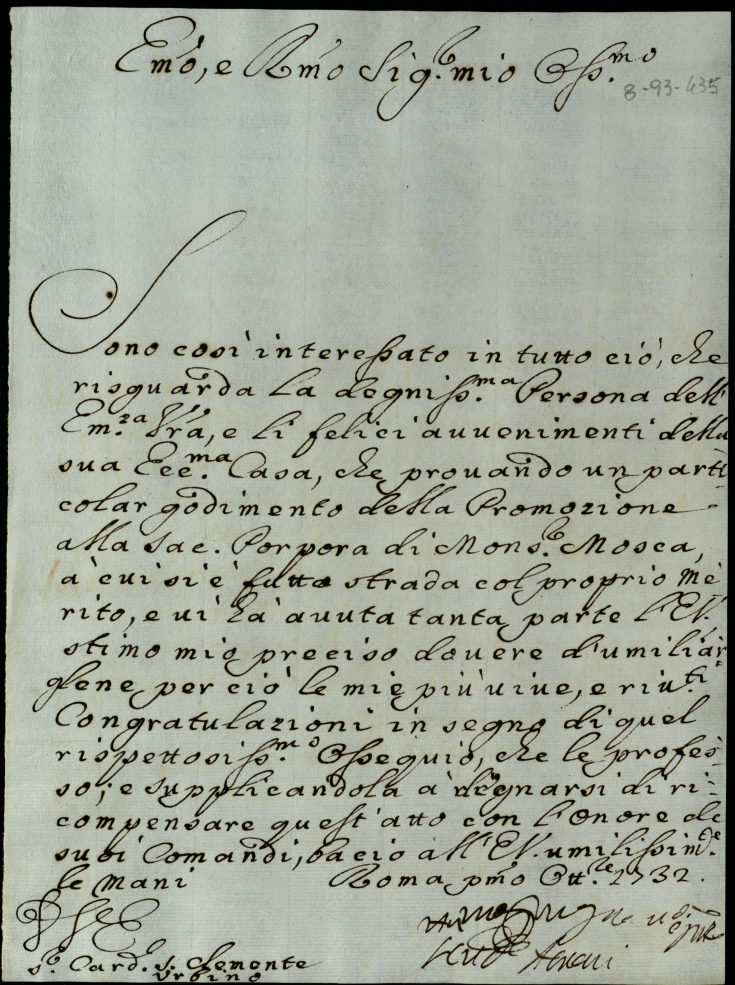 Emo, e Rmo Sig.r mio Oss.mo
8-93-435
Sono così interessato in tutto ciò, che
risguarda la degniss.ma Persona dell'
Em.za Vra, e li felici avvenimenti della
sua Ecc.ma Casa, che provando un parti-
colar godimento della Promozione
alla Sac. Porpora di Mons.r Mosca,
a' cui si è fatta strada col proprio me
rito, e vi hà avuta tanta parte l'EV.
stimo mio preciso dovere d'umiliàr
glene per ciò le mie più vive, e riv.ti
Congratulazioni in segno di quel
rispettosiss.mo Ossequio, che le profes-
so; e supplicandola à degnarsi di ri-
compensare quest'atto con l'Onore de
suoi Comandi, bacio all'EV. umilissim.te
le mani Roma pmo Ott.re 1732.
S.r Card. S. Clemente
Urbino